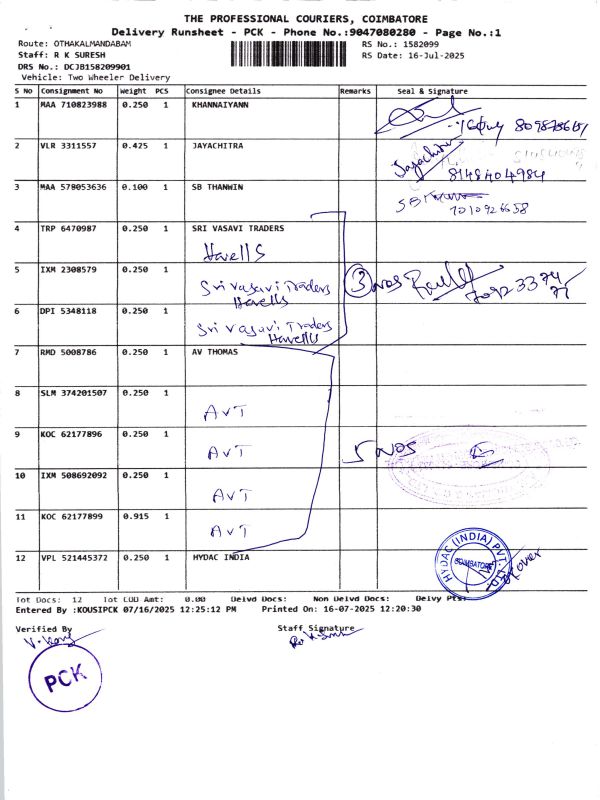 THE PROFESSIONAL COURIERS, COIMBATORE
Delivery Runsheet - PCK - Phone No.:9047080280 - Page No.:1
Route: OTHAKALMANDABAM
RS No.: 1582099
Staff: R K SURESH
RS Date: 16-Jul-2025
DRS No.: DCJB158209901
Vehicle: Two Wheeler Delivery
S No Consignment No Weight PCS Consignee Details Remarks Seal & Signature
1 MAA 710823988 0.250 1 KHANNAIYANN
2 VLR 3311557 0.425 1 JAYACHITRA
Jayachitra 8148404984
3 MAA 578053636 0.100 1 SB THANWIN
7010926658
4 TRP 6470987 0.250 1 SRI VASAVI TRADERS
Havells
5 IXM 2308579 0.250 1 Sri Vasavi Traders
Havells
3 NOS
6 DPI 5348118 0.250 1 Sri Vasavi Traders
Havells
7 RMD 5008786 0.250 1 AV THOMAS
8 SLM 374201507 0.250 1 AVT
9 KOC 62177896 0.250 1 AVT 5 NOS
10 IXM 508692092 0.250 1 AVT
11 KOC 62177899 0.915 1 AVT
12 VPL 521445372 0.250 1 HYDAC INDIA
HYDAC (INDIA) PVT. LTD.
COIMBATORE
Tot Docs: 12 Tot COD Amt: 0.00 Delvd Docs: Non Delvd Docs: Delvy Pts:
Entered By :KOUSIPCK 07/16/2025 12:25:12 PM Printed On: 16-07-2025 12:20:30
Verified By
Staff Signature
PCK